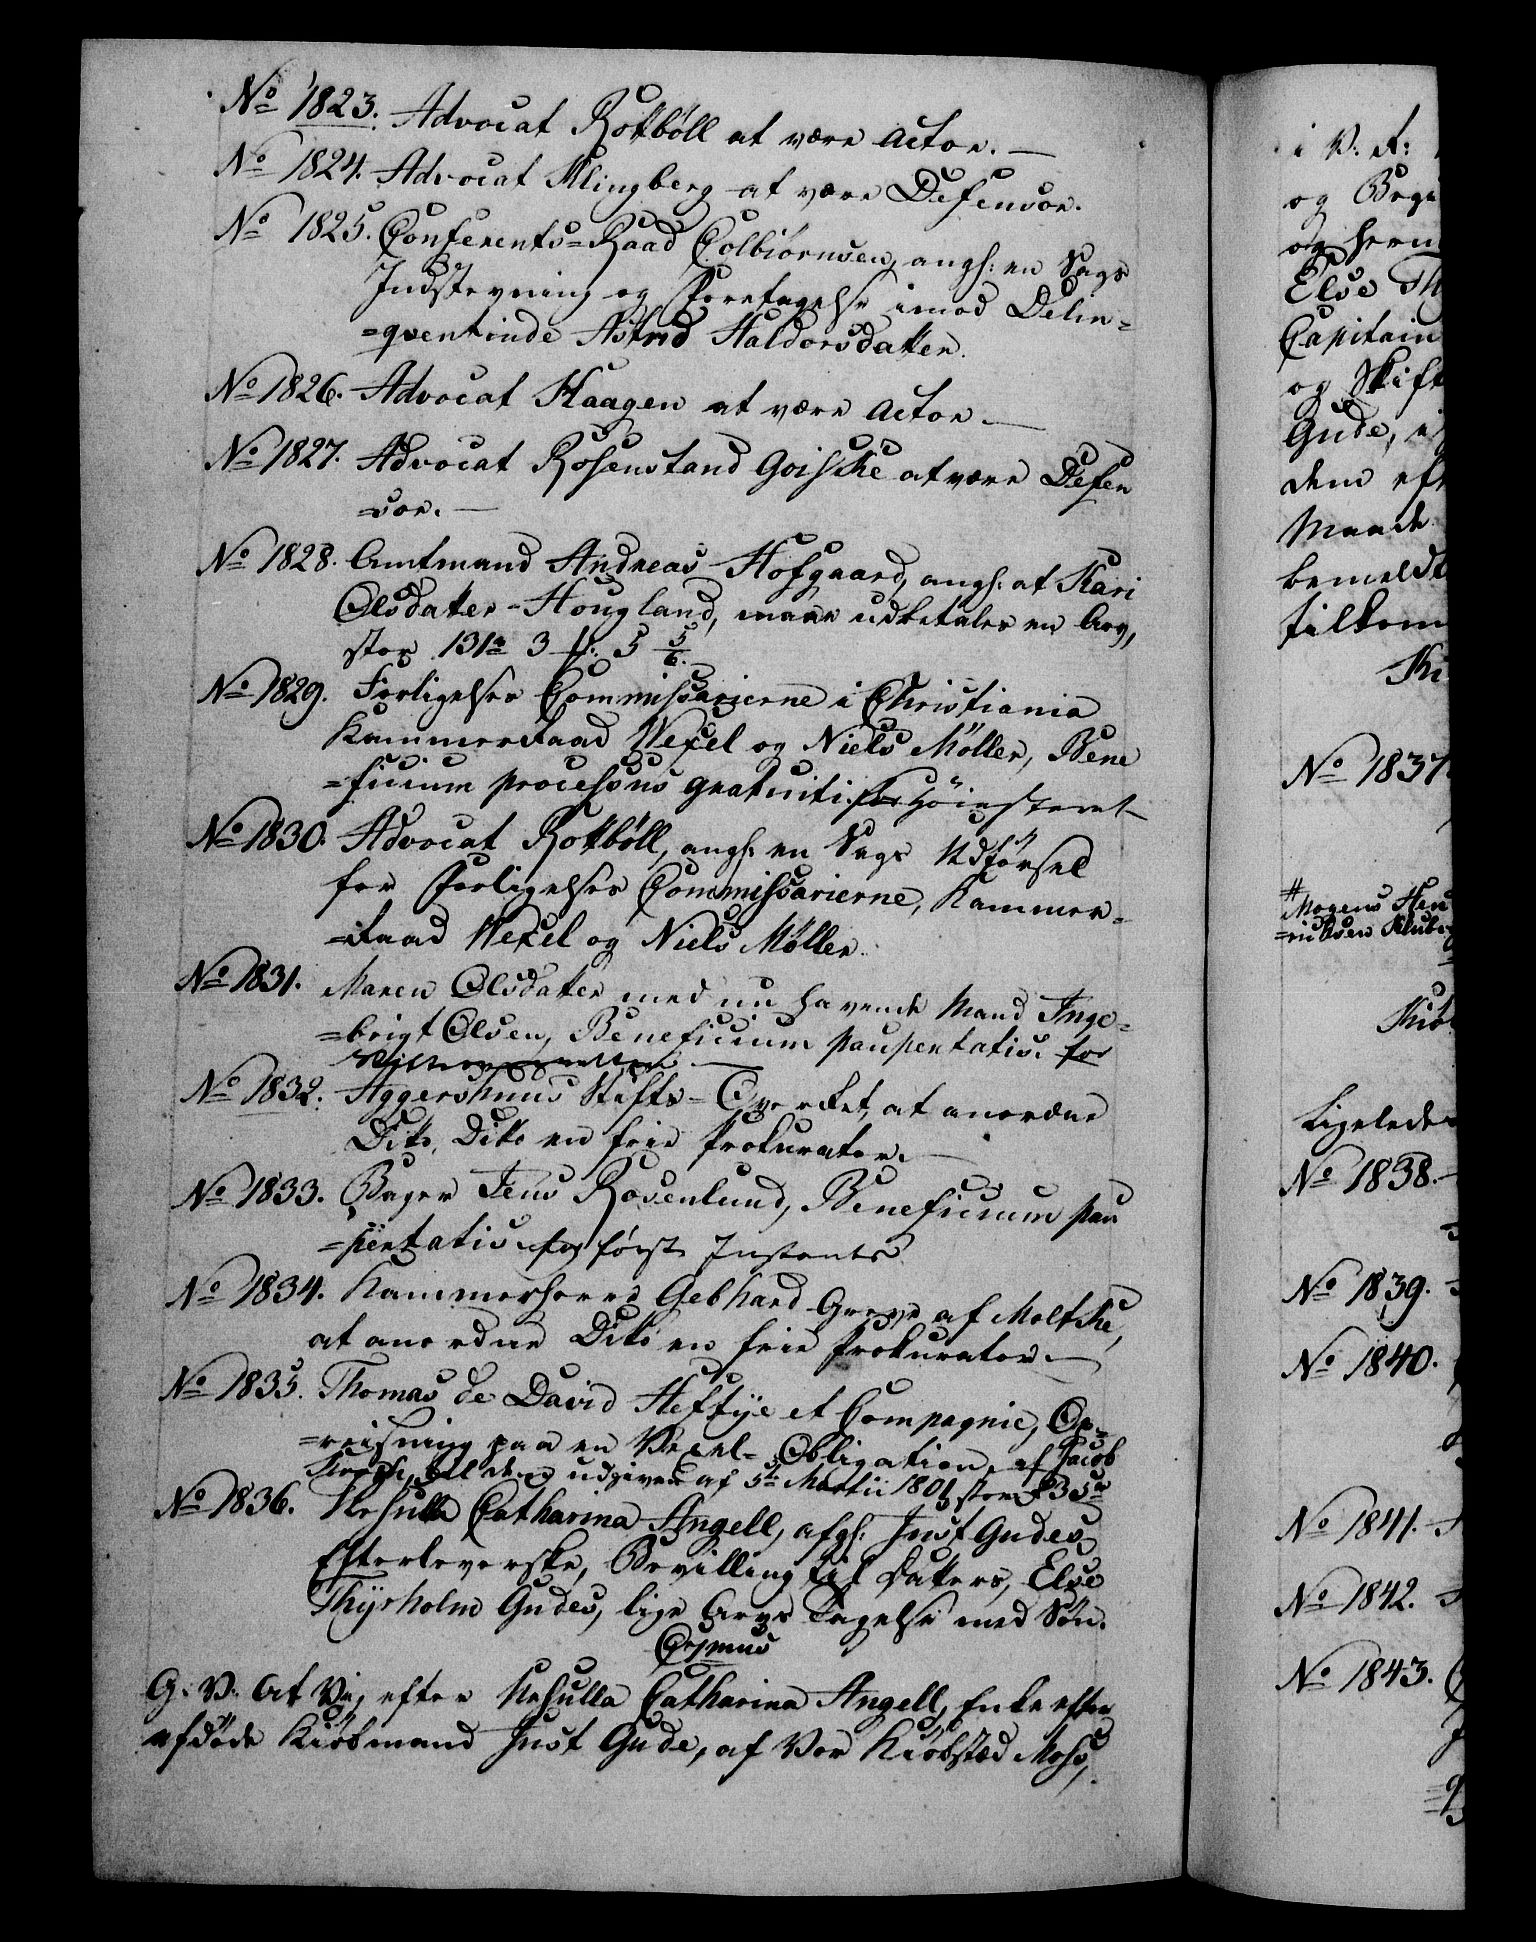 No 1823. Advocat Rottböll at være Actor. —
No 1824. Advocat Klingberg at være Defensor.
No 1825. Conferents=Raad Colbiörnsen, angh: en Sags
Indstevning og Foretagelse imod Delin=
=qventinde Astrid Haldorsdatter.
No 1826. Advocat Haagen at være Actor. —
No 1827. Advocat Rosenstand Goiske at være Defen
=sor. —
No 1828. Amtmand Andreas Hofgaard, angh: at Kari
Olsdatter Hougland, maae udbetales en Arv,
stor 131 rd 3 f: 5 5/6.
No 1829. Forligelses Commissarierne i Christiania
Kammerraad Wexel og Niels Möller, Bene
=ficium processus gratuiti. for Höiesteret
No 1830. Advocat Rottböll, angh: en Sags Udförsel
for Forligelses Commissarierne, Kammer=
=raad Wexel og Niels Möller.
No 1831. Maren Olsdatter med nu havende Mand Inge=
=brigt Olsen, Beneficium paupertatis. for
No 1832. Aggershuus Stifts=Overret, at anordne
Ditto, Ditto en frie Prokurator. —
No 1833. Bager Jens Rosenlund, Beneficium pau
=pertatis. for förste Instants
No 1834. Kammerherre Gebhard Greve af Moltke,
at anordne Ditto en frie Prokurator. —
No 1835. Thomas de David Heftÿe et Compagnie, Op=
=reisning paa en Vexel=Obligation, af Jacob
udgiven af 5te Martii 1801 stor 835 rd
No 1836. Ursulla Catharina Angell, afgh: Just Gudes
Efterleverske, Bevilling til Datters, Else
Thÿrholm Gudes, lige Arvs Tagelse med Søn.
G. V. At Vi, efter Ursulla Catharina Angell, Enke efter
afdöde Kiöbmand Just Gude, af Vor Kiöbstæd Moss,
i V: A:
og
og
Else
Capitain
og Skift
Gude, i
dem eft
Maade
bemeldt
tilkom
No 1837
#
Mogens Hen
=richsen
Ligeledes
No 1838.
No 1839.
No 1840.
No 1841.
No 1842.
No 1843.